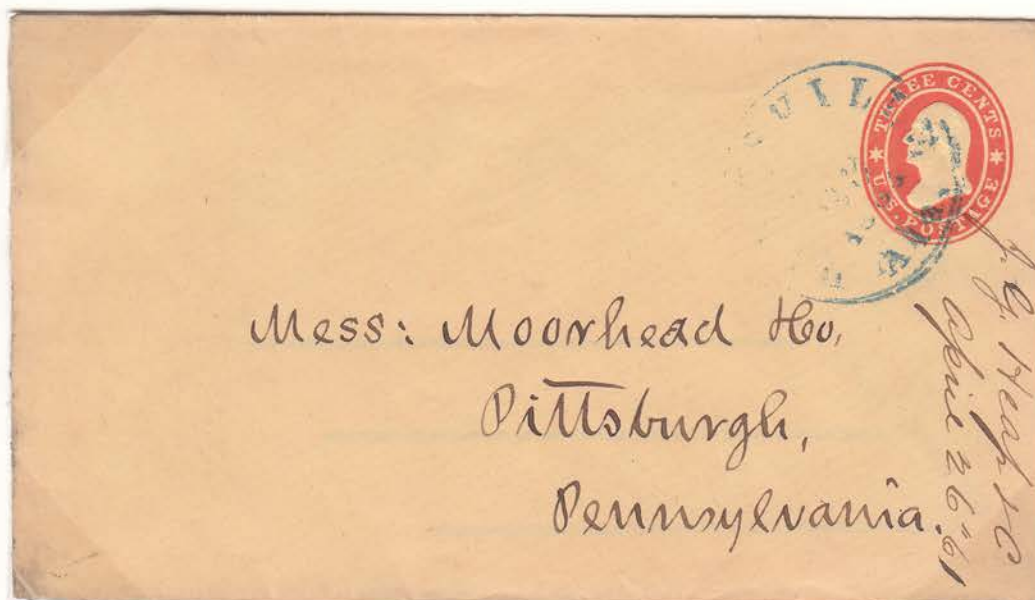 THREE CENTS
U.S. POSTAGE
UIL
Mess: Moorhead &Co,
Pittsburgh,
Pennsylvania.
April 26" 61